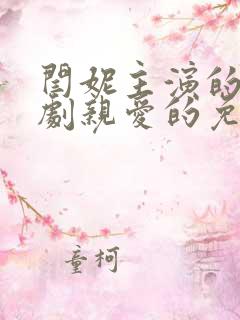 閆妮主演的
劇親愛的免
童柯